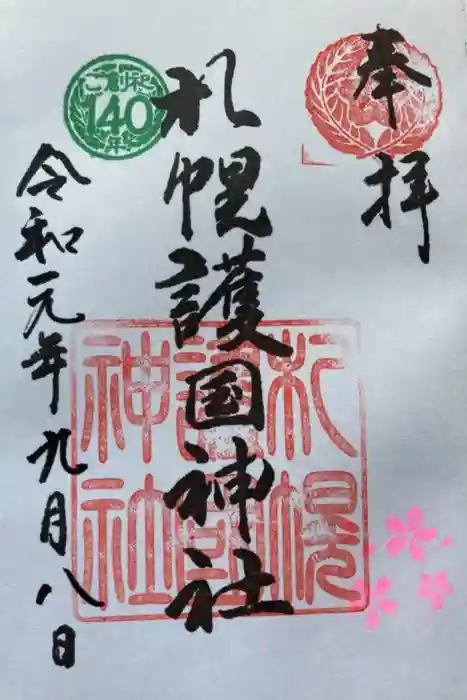 奉拝
札幌護国神社
札幌
護国
神社
ご創祀
140
年
令和元年九月八日